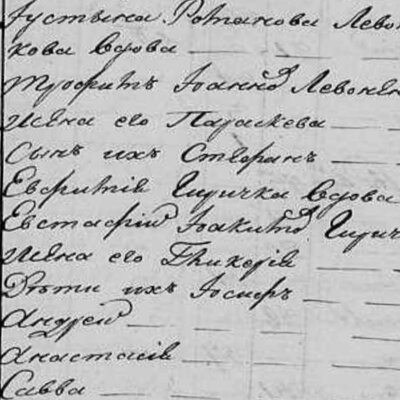 Іустына Романова Левон
кова вдова
Трофимъ Іоанновъ Левонен
Жена его Параскева
Сынъ ихъ Стефанъ
Евфимія Гиричка вдова
Евстафій Іоакимовъ Гирич
Жена его Гликерія
Дѣти ихъ Іосифъ
Андрей
Анастасія
Савва